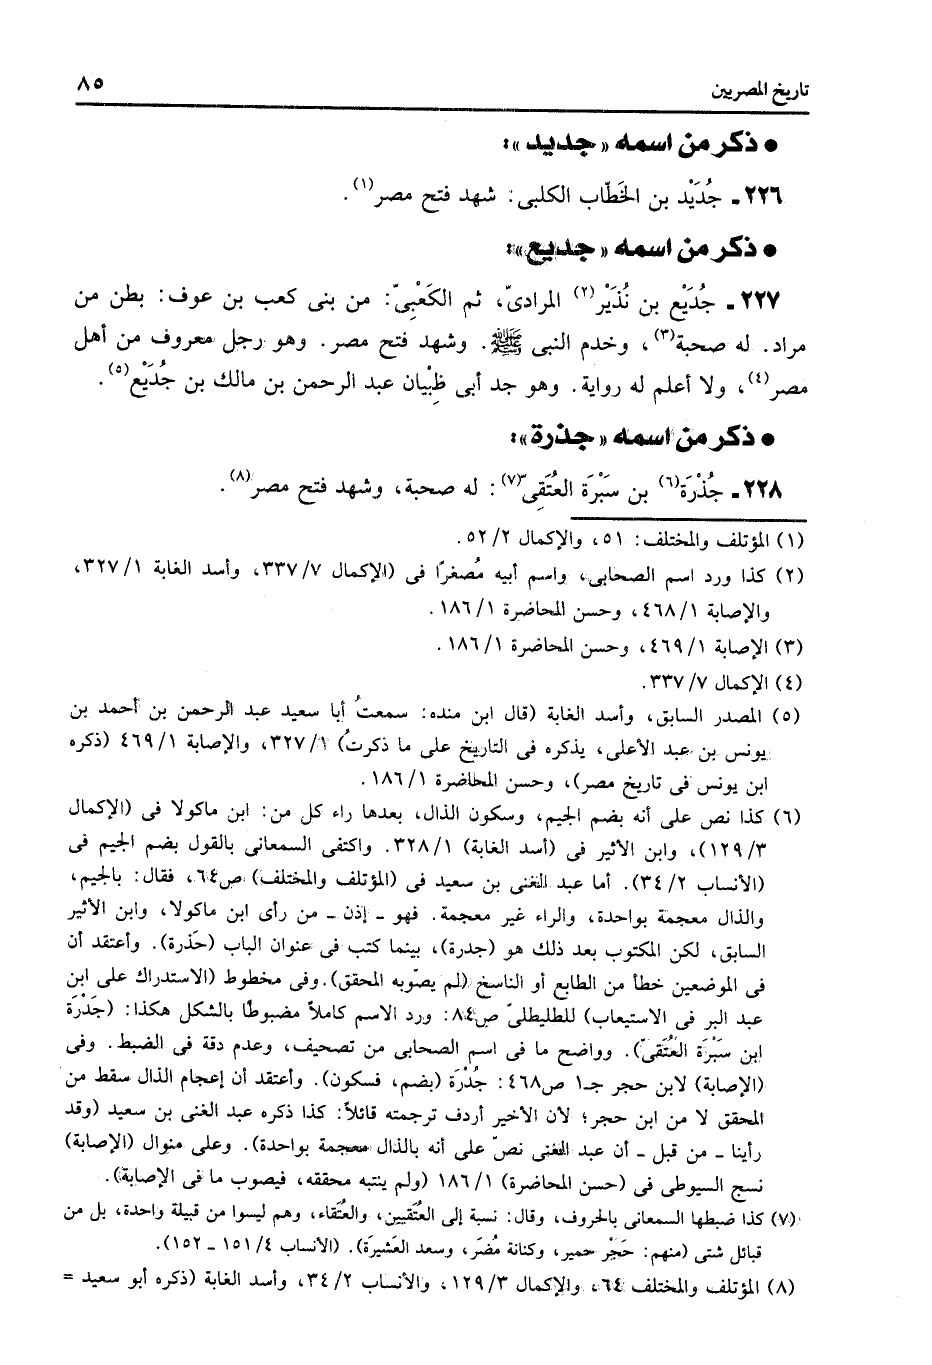 تاريخ المصريين
٨٥
• ذكر من اسمه «جديد»:
٢٢٦ـ جُدَيْد بن الخَطّاب الكلبى: شهد فتح مصر(١).
• ذكر من اسمه «جديع»:
٢٢٧ـ جُدَيْع بن نُذَيْر(٢) المرادىّ، ثم الكَعْبِىّ: من بنى كعب بن عوف: بطن من
مراد. له صحبة(٣)، وخدم النبى ﷺ. وشهد فتح مصر. وهو رجل معروف من أهل
مصر(٤)، ولا أعلم له رواية. وهو جد أبى ظَبْيان عبد الرحمن بن مالك بن جُدَيْع(٥).
• ذكر من اسمه «جذرة»:
٢٢٨ـ جُذْرَة(٦) بن سَبْرَة العُتَقِىّ(٧): له صحبة، وشهد فتح مصر(٨).
(١) المؤتلف والمختلف: ٥١، والإكمال ٥٢/٢.
(٢) كذا ورد اسم الصحابى، واسم أبيه مُصغرًا فى (الإكمال ٣٣٧/٧، وأسد الغابة ٣٢٧/١،
والإصابة ٤٦٨/١، وحسن المحاضرة ١٨٦/١.
(٣) الإصابة ٤٦٩/١، وحسن المحاضرة ١٨٦/١.
(٤) الإكمال ٣٣٧/٧.
(٥) المصدر السابق، وأسد الغابة (قال ابن منده: سمعتُ أبا سعيد عبد الرحمن بن أحمد بن
يونس بن عبد الأعلى، يذكره فى التاريخ على ما ذكرتُ) ٣٢٧/١، والإصابة ٤٦٩/١ (ذكره
ابن يونس فى تاريخ مصر)، وحسن المحاضرة ١٨٦/١.
(٦) كذا نص على أنه بضم الجيم، وسكون الذال، بعدها راء كل من: ابن ماكولا فى (الإكمال
١٢٩/٣)، وابن الأثير فى (أسد الغابة) ٣٢٨/١. واكتفى السمعانى بالقول بضم الجيم فى
(الأنساب ٣٤/٢). أما عبد الغنى بن سعيد فى (المؤتلف والمختلف) ص٦٤، فقال: بالجيم،
والذال معجمة بواحدة، والراء غير معجمة. فهو ـ إذن ـ من رأى ابن ماكولا، وابن الأثير
السابق، لكن المكتوب بعد ذلك هو (جدرة)، بينما كتب فى عنوان الباب (حَذرة). وأعتقد أن
فى الموضعين خطأ من الطابع أو الناسخ (لم يصوّبه المحقق). وفى مخطوط (الاستدراك على ابن
عبد البر فى الاستيعاب) للطليطلىّ ص٨٤: ورد الاسم كاملاً مضبوطًا بالشكل هكذا: (جَدْرَة
ابن سَبْرَة العُتَقىّ). وواضح ما فى اسم الصحابى من تصحيف، وعدم دقة فى الضبط. وفى
(الإصابة) لابن حجر جـ١ ص٤٦٨: جُدْرَة (بضم، فسكون). وأعتقد أن إعجام الذال سقط من
المحقق لا من ابن حجر؛ لأن الأخير أردف ترجمته قائلاً: كذا ذكره عبد الغنى بن سعيد (وقد
رأينا ـ من قبل ـ أن عبد الغنى نصّ على أنه بالذال معجمة بواحدة). وعلى منوال (الإصابة)
نسج السيوطى فى (حسن المحاضرة) ١٨٦/١ (ولم ينتبه محققه، فيصوب ما فى الإصابة).
(٧) كذا ضبطها السمعانى بالحروف، وقال: نسبة إلى العُتَقيين، والعتقاء، وهم ليسوا من قبيلة واحدة، بل من
قبائل شتى (منهم: حَجْر حمير، وكنانة مُضَر، وسعد العَشيرَة). (الأنساب ١٥١/٤ ـ ١٥٢).
(٨) المؤتلف والمختلف ٦٤، والإكمال ١٢٩/٣، والأنساب ٣٤/٢، وأسد الغابة (ذكره أبو سعيد =